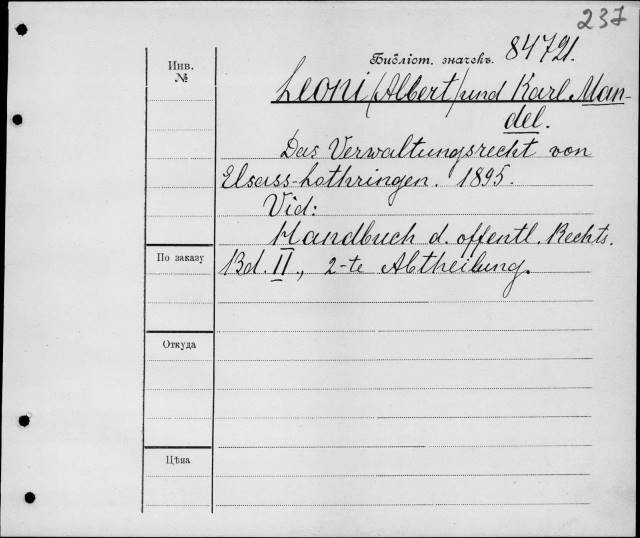 237
Библіот. значекъ. 84721.
Инв.
№
Leoni (Albert) und Karl Man-
del.
Das Verwaltungsrecht von
Elsass-Lothringen. 1895.
Vid:
Handbuch d. offentl. Rechts.
По заказу
Bd. II., 2-te Abtheilung.
Откуда
Цѣна